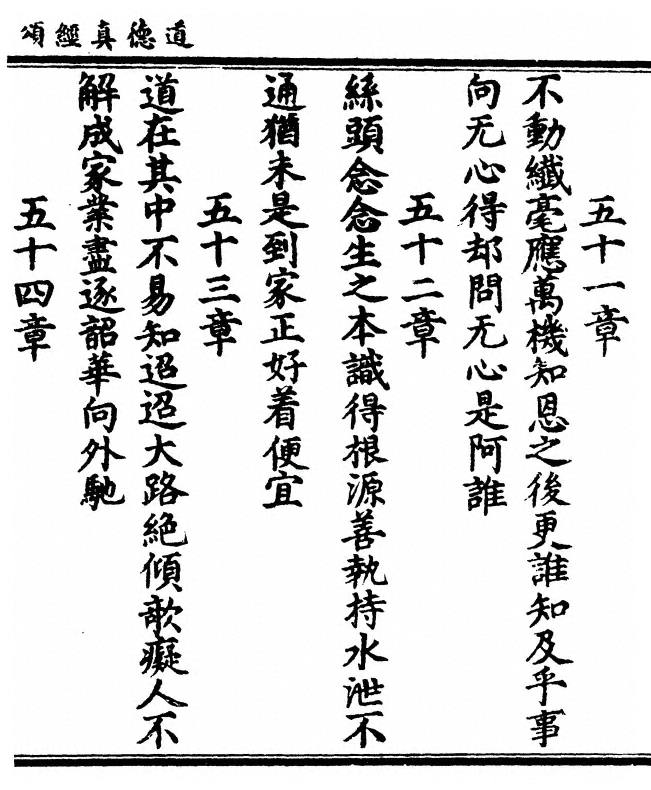 道德真經頌
五十一章
不動纖毫應萬機知恩之後更誰知及乎事
向无心得却問无心是阿誰
五十二章
絲頭念念生之本識得根源善執持水泄不
通猶未是到家正好着便宜
五十三章
道在其中不易知迢迢大路絕傾欹癡人不
解成家業盡逐韶華向外馳
五十四章